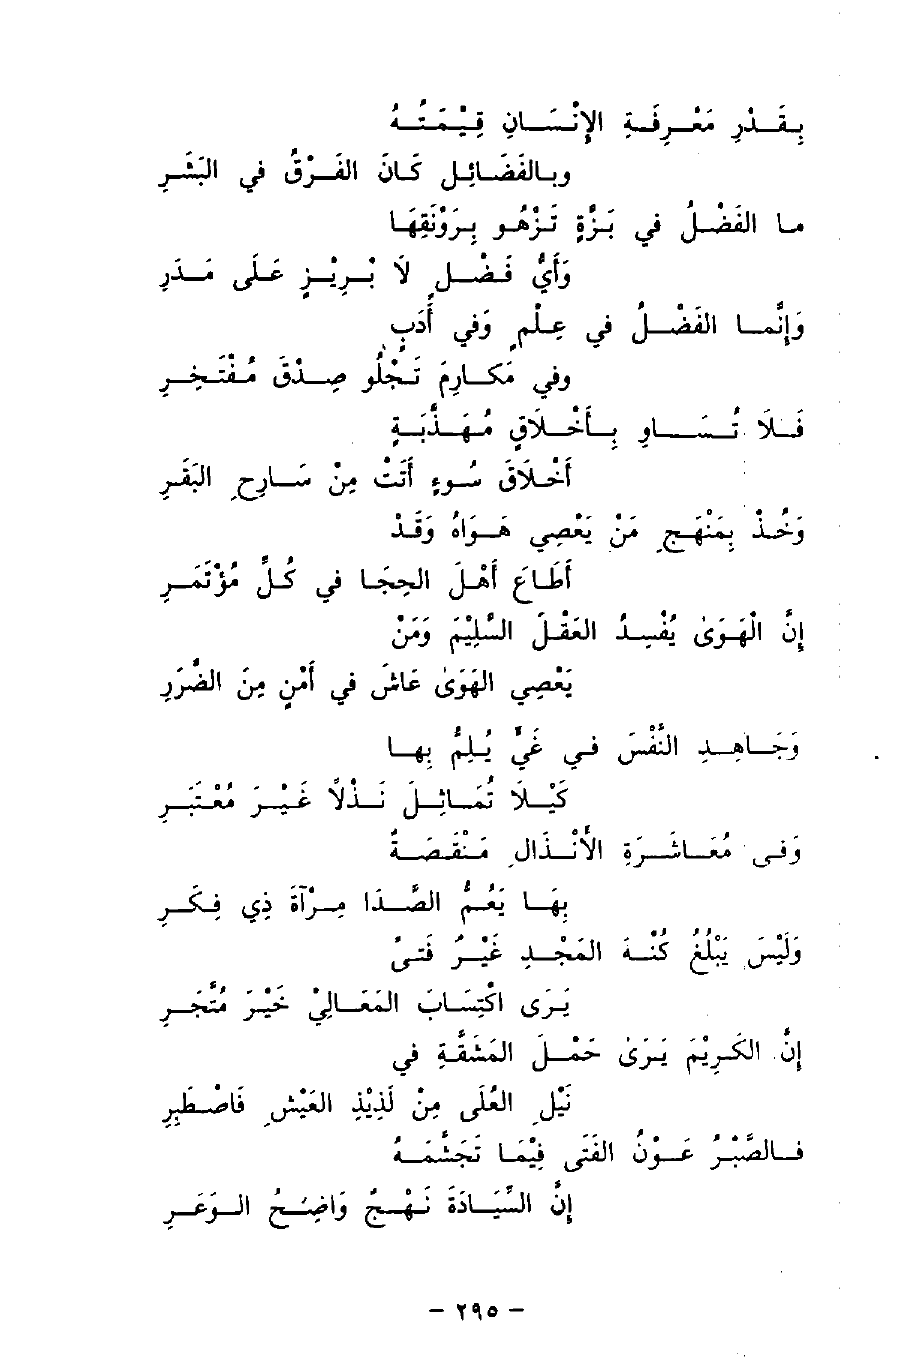 بِقَدْرِ مَعْرِفَةِ الإِنْسَانِ قِيْمَتُهُ
وبالفَضَائِلِ كَانَ الفَرْقُ في البَشَرِ
ما الفَضْلُ في بَزَّةٍ تَزْهُو بِرَوْنَقِهَا
وَأَيُّ فَضْلٍ لَا بْرِيْزٍ عَلَى مَدَرِ
وَإِنَّما الفَضْلُ في عِلْمٍ وَفي أَدَبٍ
وفي مَكَارِمَ تَجْلُو صِدْقَ مُفْتَخِرِ
فَلَا تُسَاوِ بِأَخْلَاقٍ مُهَذَّبَةٍ
أَخْلَاقَ سُوءٍ أَتَتْ مِنْ سَارِحِ البَقَرِ
وَخُذْ بِمَنْهَجِ مَنْ يَعْصِي هَوَاهُ وَقَدْ
أَطَاعَ أَهْلَ الحِجَا في كُلِّ مُؤْتَمَرِ
إِنَّ الْهَوَىٰ يُفْسِدُ العَقْلَ السَّلِيْمَ وَمَنْ
يَعْصِي الهَوَىٰ عَاشَ في أَمْنٍ مِنَ الضَّرَرِ
وَجَاهِدِ النَّفْسَ في غَيٍّ يُلِمُّ بِها
كَيْلَا تُمَاثِلَ نَذْلاً غَيْرَ مُعْتَبَرِ
وَفي مُعَاشَرَةِ الأَنْذَالِ مَنْقَصَةٌ
بِهَا يَعُمُّ الصَّدَا مِرْآةَ ذِي فِكَرِ
وَلَيْسَ يَبْلُغُ كُنْهَ المَجْدِ غَيْرُ فَتىً
يَرَى اكْتِسَابَ المَعَالِيْ خَيْرَ مُتَّجَرِ
إِنَّ الكَرِيْمَ يَرَىٰ حَمْلَ المَشَقَّةِ في
نَيْلِ العُلَى مِنْ لَذِيْذِ العَيْشِ فَاصْطَبِرِ
فالصَّبْرُ عَوْنُ الفَتَى فِيْمَا تَجَشَّمَهُ
إِنَّ السِّيَادَةَ نَهْجٌ وَاضِحُ الوَعَرِ
– ٢٩٥ –